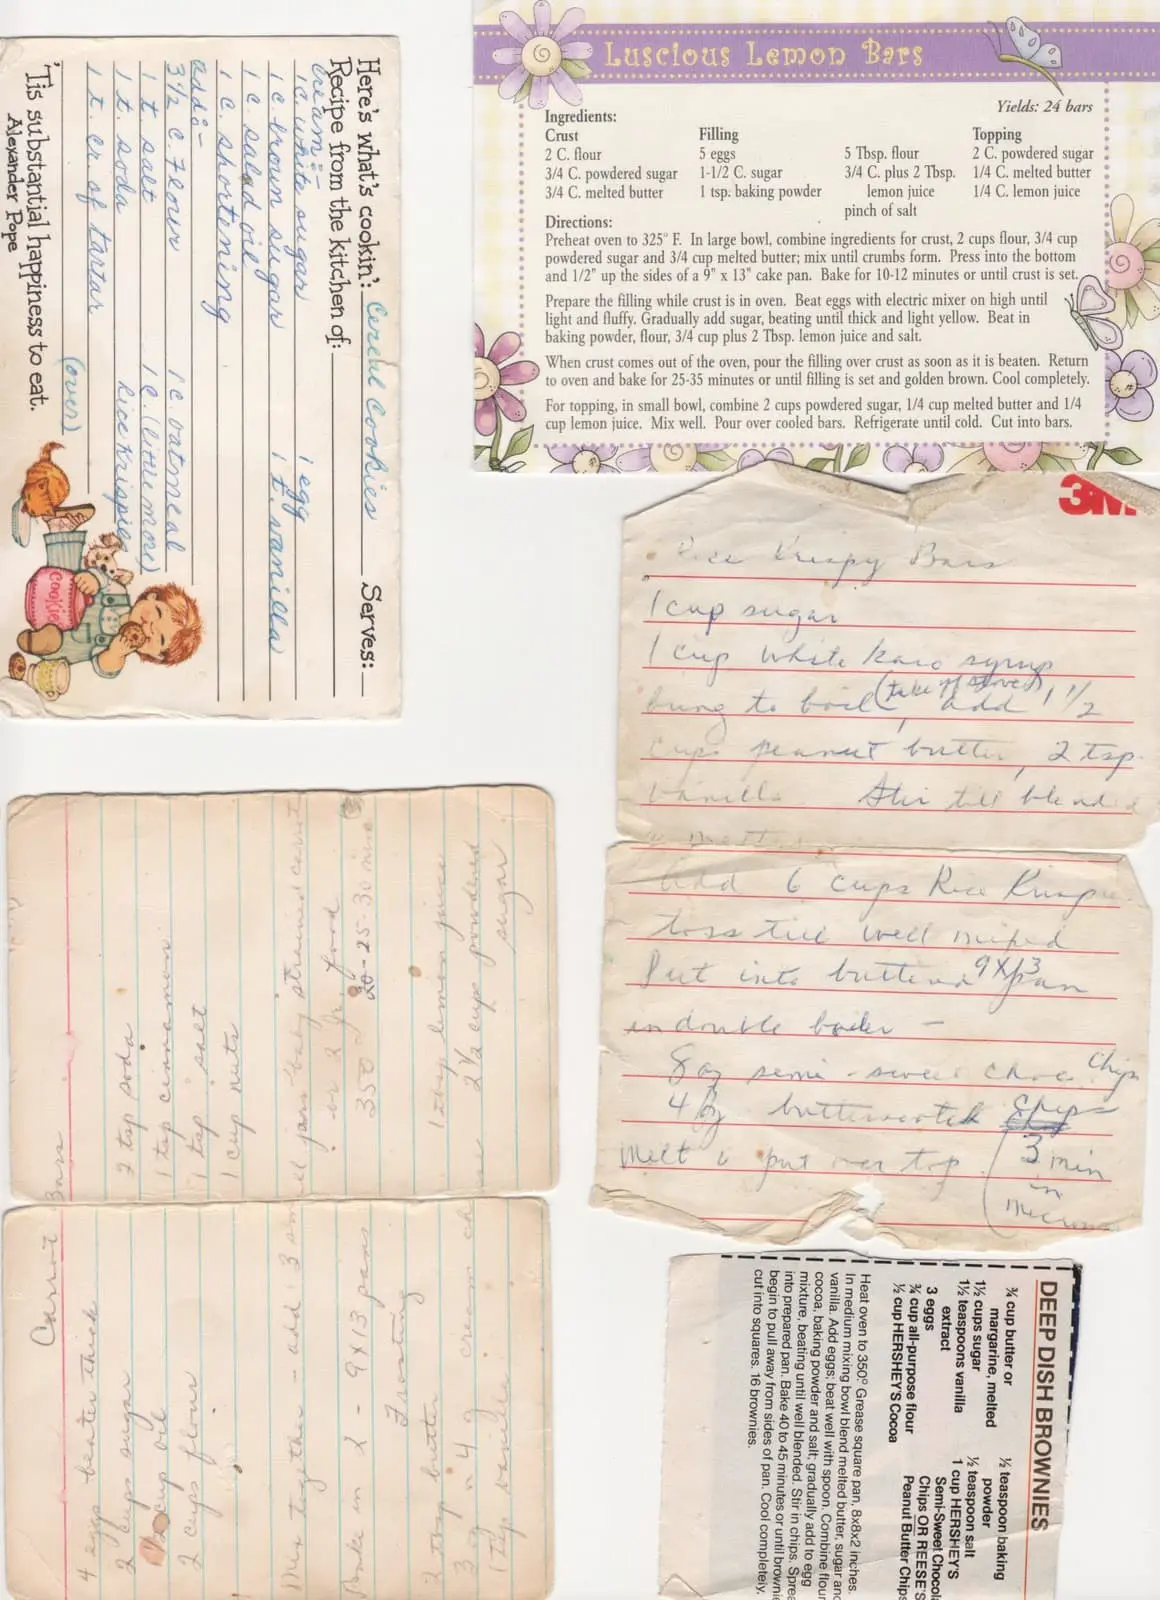 Luscious Lemon Bars
Yields: 24 bars
Ingredients:
Crust
2 C. flour
3/4 C. powdered sugar
3/4 C. melted butter
Filling
5 eggs
1-1/2 C. sugar
1 tsp. baking powder
5 Tbsp. flour
3/4 C. plus 2 Tbsp.
lemon juice
pinch of salt
Topping
2 C. powdered sugar
1/4 C. melted butter
1/4 C. lemon juice
Directions:
Preheat oven to 325° F. In large bowl, combine ingredients for crust, 2 cups flour, 3/4 cup
powdered sugar and 3/4 cup melted butter; mix until crumbs form. Press into the bottom
and 1/2" up the sides of a 9" x 13" cake pan. Bake for 10-12 minutes or until crust is set.
Prepare the filling while crust is in oven. Beat eggs with electric mixer on high until
light and fluffy. Gradually add sugar, beating until thick and light yellow. Beat in
baking powder, flour, 3/4 cup plus 2 Tbsp. lemon juice and salt.
When crust comes out of the oven, pour the filling over crust as soon as it is beaten. Return
to oven and bake for 25-35 minutes or until filling is set and golden brown. Cool completely.
For topping, in small bowl, combine 2 cups powdered sugar, 1/4 cup melted butter and 1/4
cup lemon juice. Mix well. Pour over cooled bars. Refrigerate until cold. Cut into bars.
Here's what's cookin': Cereal Cookies Serves:
Recipe from the kitchen of:
Cream:-
1 C. white sugar 1 egg
1 C. brown sugar 1 t. vanilla
1 C. salad oil
1 C. shortening
add:-
3 1/2 C. Flour 1 C. oatmeal
1 t. salt 1 C. (little more)
1 t. soda Rice Krispies
1 t. cr. of tartar
(over)
'Tis substantial happiness to eat.
Alexander Pope
COOKIE
3M
Rice Krispy Bars
1 cup sugar
1 cup white karo syrup
bring to boil (take off stove), add 1 1/2
cups peanut butter, 2 tsp.
vanilla. Stir till blended
Add 6 cups Rice
toss till well mixed
Put into buttered 9X13 pan
in double boiler -
8 oz semi-sweet choc chips
4 oz butterscotch chips
Melt & put over top (3 min
in
Carrot Bars
4 eggs beaten thick 2 tsp soda
2 cups sugar 1 tsp cinnamon
cup oil 1 tsp salt
2 cups flour 1 cup nuts
Mix together - add: 3 small jars baby strained carrots
or 2 jr. food
Bake in 2 - 9X13 pans 350° 20-25-30 mins
Frosting
2 tbsp butter 1 tbsp lemon juice
3 oz n 4 oz cream cheese 2 1/2 cups powdered
1 tsp vanilla sugar
DEEP DISH BROWNIES
¾ cup butter or
margarine, melted
1½ cups sugar
1½ teaspoons vanilla
extract
3 eggs
¾ cup all-purpose flour
½ cup HERSHEY'S Cocoa
½ teaspoon baking
powder
½ teaspoon salt
1 cup HERSHEY'S
Semi-Sweet
Chips OR REESE'S
Peanut Butter Chips
Heat oven to 350°. Grease square pan, 8x8x2 inches.
In medium mixing bowl blend melted butter, sugar and
vanilla. Add eggs; beat well with spoon. Combine flour,
cocoa, baking powder and salt; gradually add to egg
mixture, beating until well blended. Stir in chips. Spread
into prepared pan. Bake 40 to 45 minutes or until brownies
begin to pull away from sides of pan. Cool completely;
cut into squares. 16 brownies.